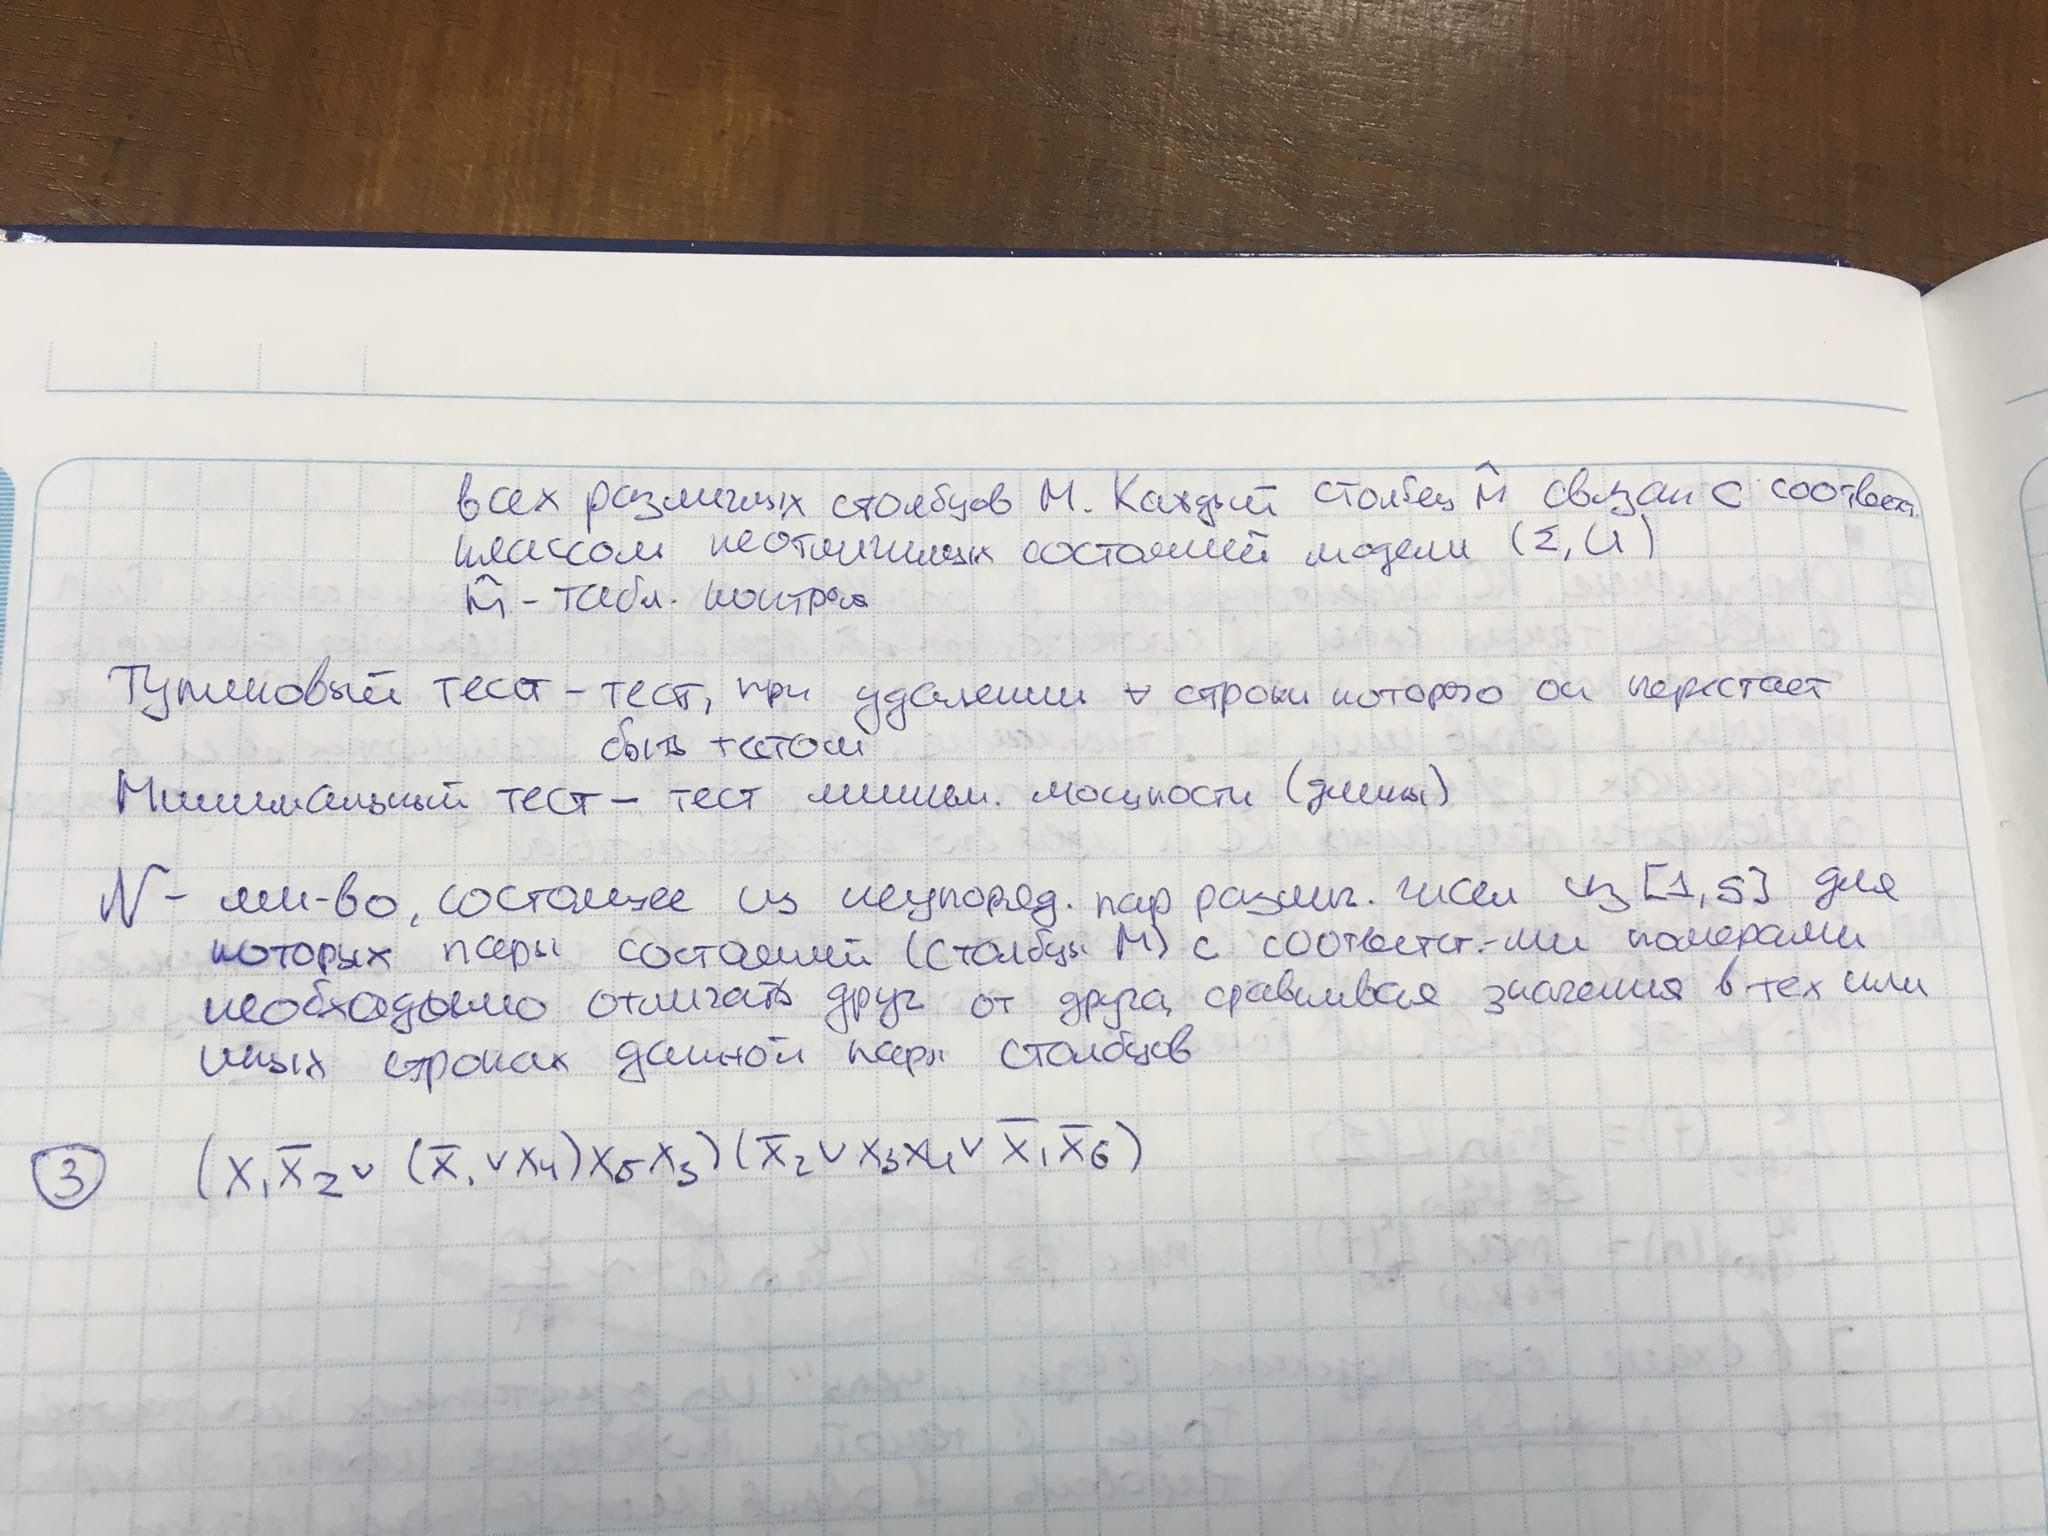 всех различных столбцов M. Каждый столбец M̂ связан с соответст.
классом неотличимых состояний модели (Σ, U)
M̂ - табл. контроля
Тупиковый тест - тест, при удалении ∀ строки которого он перестает
быть тестом
Минимальный тест - тест миним. мощности (длины)
N - мн-во, состоящее из неупоряд. пар различ. чисел из [1, s] для
которых пары состояний (столбцы M) с соответст.-ми номерами
необходимо отличать друг от друга, сравнивая значения в тех или
иных строках данной пары столбцов
③ (x₁x̄₂ ∨ (x̄₁ ∨ x₄)x₅x₃)(x̄₂ ∨ x₃x₄ ∨ x̄₁x̄₆)